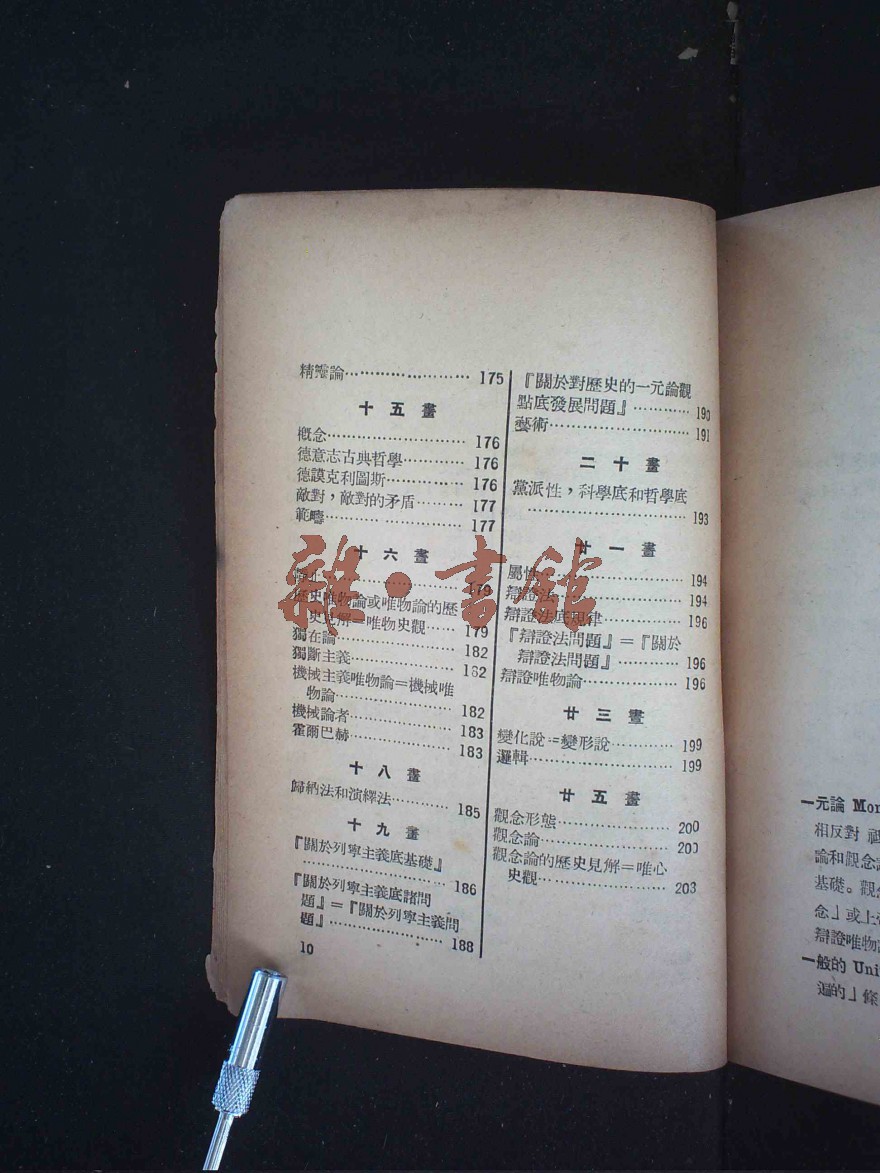 精靈論 175
十五畫
概念 176
德意志古典哲學 176
德謨克利圖斯 176
敵對，敵對的矛盾 177
範疇 177
十六畫
179
歷史唯物論或唯物論的歷
史見解＝唯物史觀 179
獨在論 182
獨斷主義 182
機械主義唯物論＝機械唯
物論 182
機械論者 183
霍爾巴赫 183
十八畫
歸納法和演繹法 185
十九畫
『關於列寧主義底基礎』
186
『關於列寧主義底諸問
題』＝『關於列寧主義問
題』 188
10
『關於對歷史的一元論觀
點底發展問題』 190
藝術 191
二十畫
黨派性，科學底和哲學底
193
廿一畫
屬性 194
辯證法 194
辯證法底規律 196
『辯證法問題』＝『關於
辯證法問題』 196
辯證唯物論 196
廿三畫
變化說＝變形說 199
邏輯 199
廿五畫
觀念形態 200
觀念論 200
觀念論的歷史見解＝唯心
史觀 203
一元論 Mon
相反對
論和觀念
基礎。觀
念」或上
辯證唯物
一般的 Uni
遍的」條
雜·書館